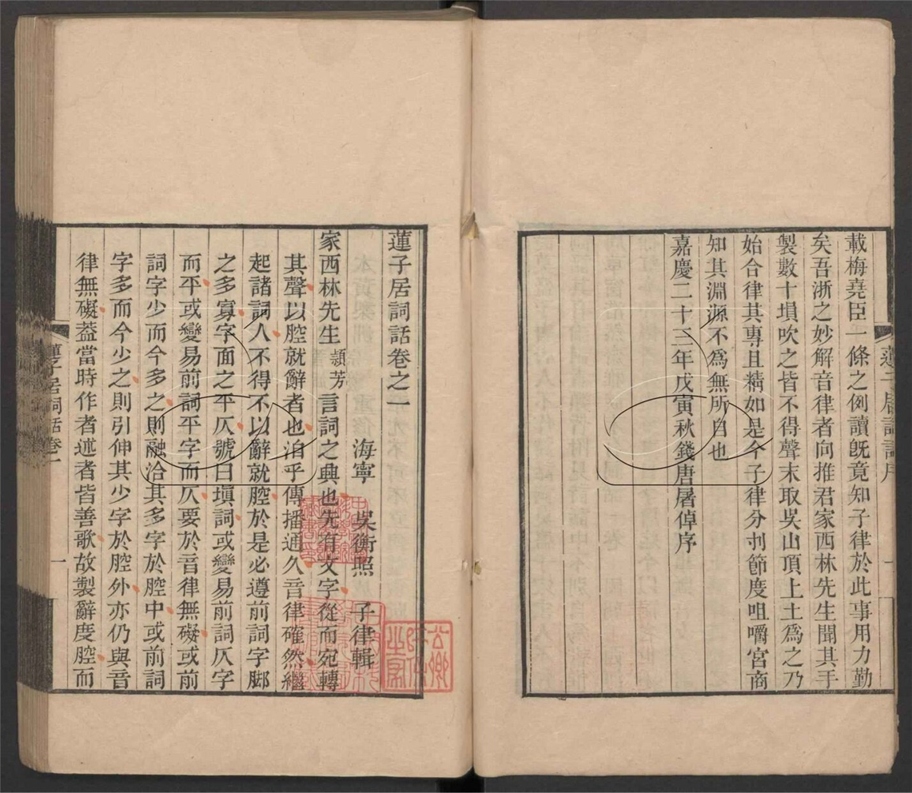 載梅堯臣一條之例讀旣竟知子律於此事用力勤
矣吾浙之妙解音律者向推君家西林先生聞其手
製數十塤吹之皆不得聲末取吳山頂上土為之乃
始合律其專且精如是今子律分刌節度咀嚼宮商
知其淵源不為無所自也
嘉慶二十三年戊寅秋錢唐屠倬序
蓮子居詞話卷之一
海寧 吳衡照 子律輯
家西林先生穎芳言詞之興也先有文字從而宛轉
其聲以腔就辭者也洎乎傳播通久音律確然繼
起諸詞人不得不以辭就腔於是必遵前詞字腳
之多寡字面之平仄號曰塡詞或變易前詞仄字
而平或變易前詞平字而仄要於音律無礙或前
詞字少而今多之則融洽其多字於腔中或前詞
字多而今少之則引伸其少字於腔外亦仍與音
律無礙葢當時作者述者皆善歌故製辭度腔而
蓮子居詞話卷一
一